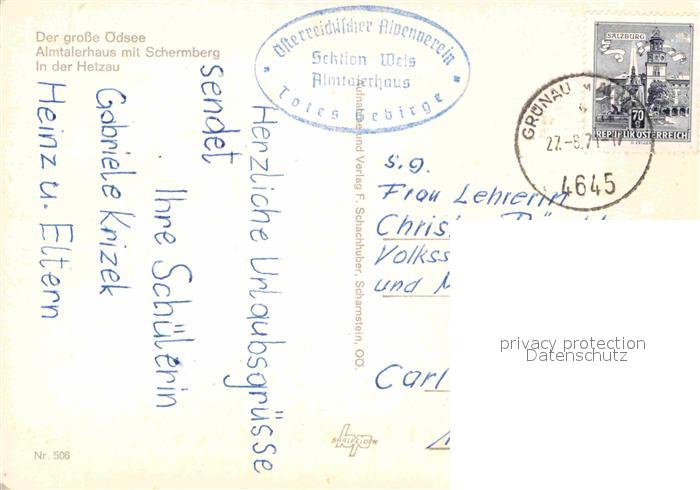 Der große Ödsee
Almtalerhaus mit Schermberg
In der Hetzau
Österreichischer Alpenverein
Sektion Wels
Almtalerhaus
* Totes Gebirge *
SALZBURG
70
REPUBLIK ÖSTERREICH
GRÜNAU
27.-8.71-17
4645
Herzliche Urlaubsgrüsse
sendet
Ihre Schülerin
Gabriele Knizek
Heinz u. Eltern
Aufnahme und Verlag F. Schachhuber, Scharnstein, OÖ.
S.g.
Frau Lehrerin
Volkss
und
Carl
privacy protection
Datenschutz
SAALFELDEN
Nr. 506